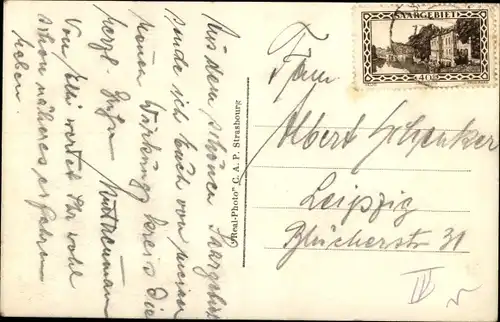 Aus dem schönen Saargebiet
sende ich Euch von meinem
neuen Wirkungskreis die
herzl. Grüße
Von Elli werdet Ihr wohl
schon näheres erfahren
haben.
"Real-Photo" C. A. P. Strasbourg
SAARGEBIET
40
Fam.
Albert Schenker
Leipzig
Blücherstr 31
IV